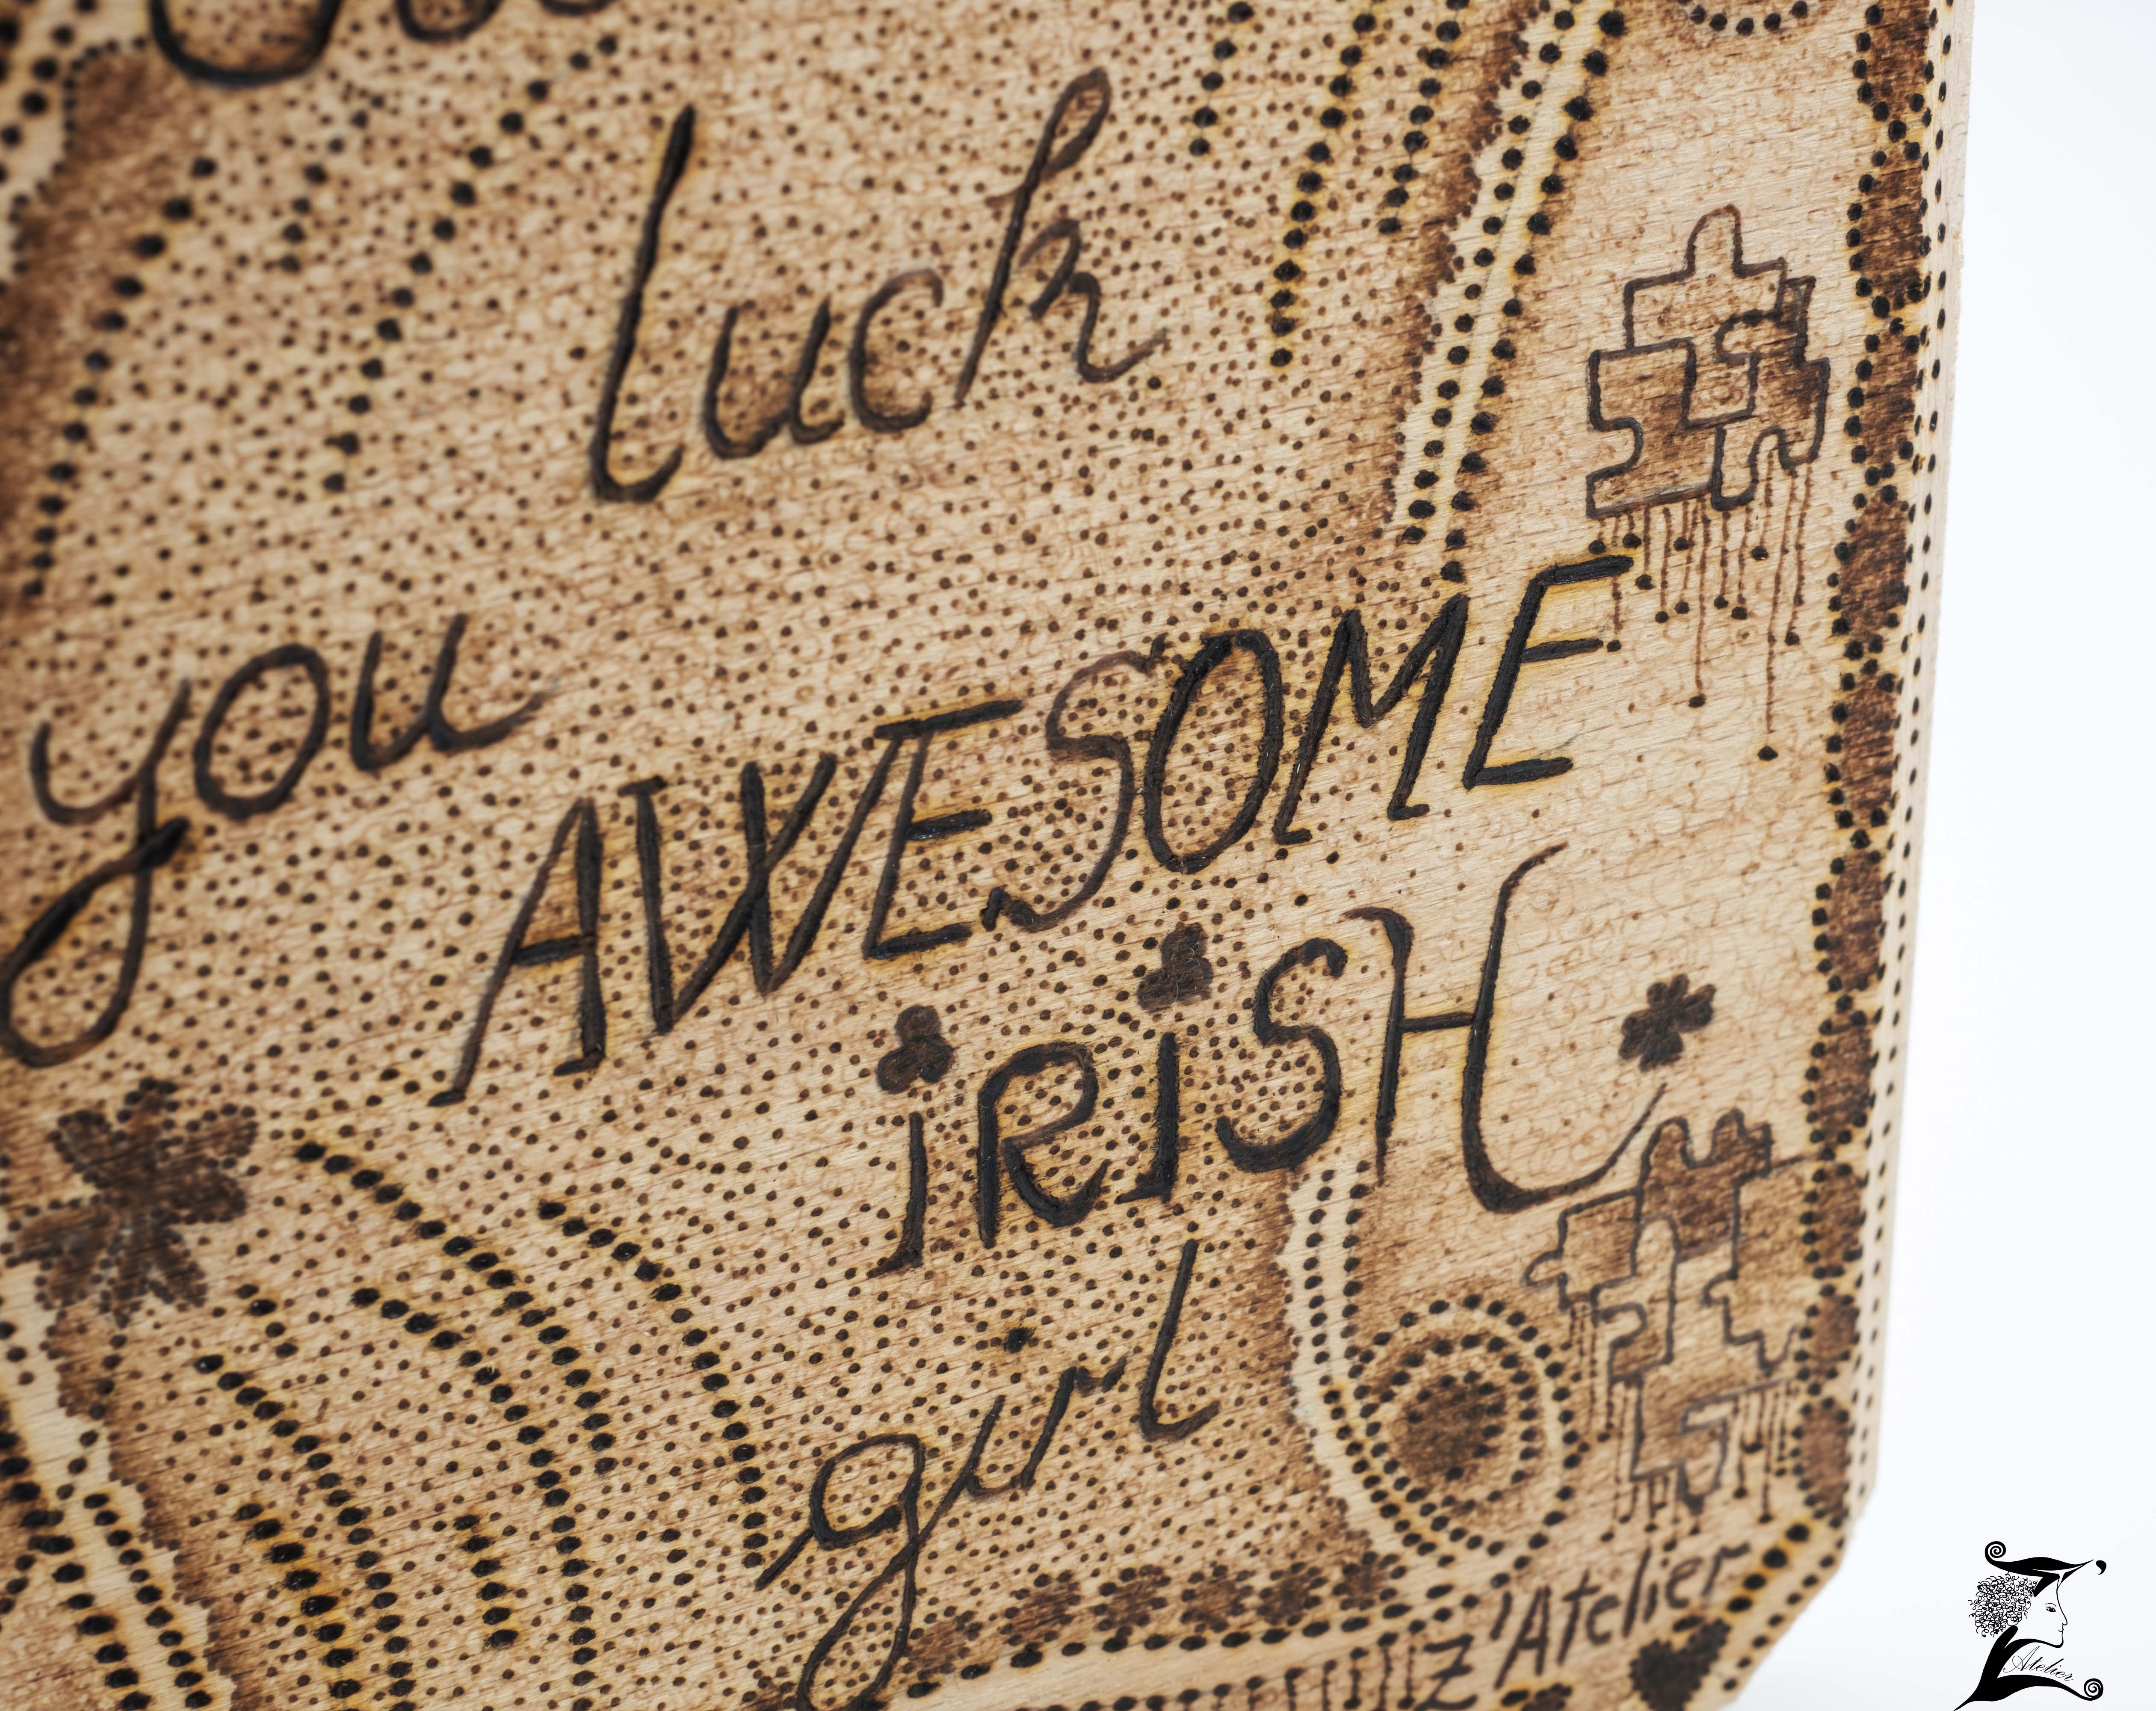 luck
you
AWESOME
IRISH
girl
Z'Atelier
Atelier